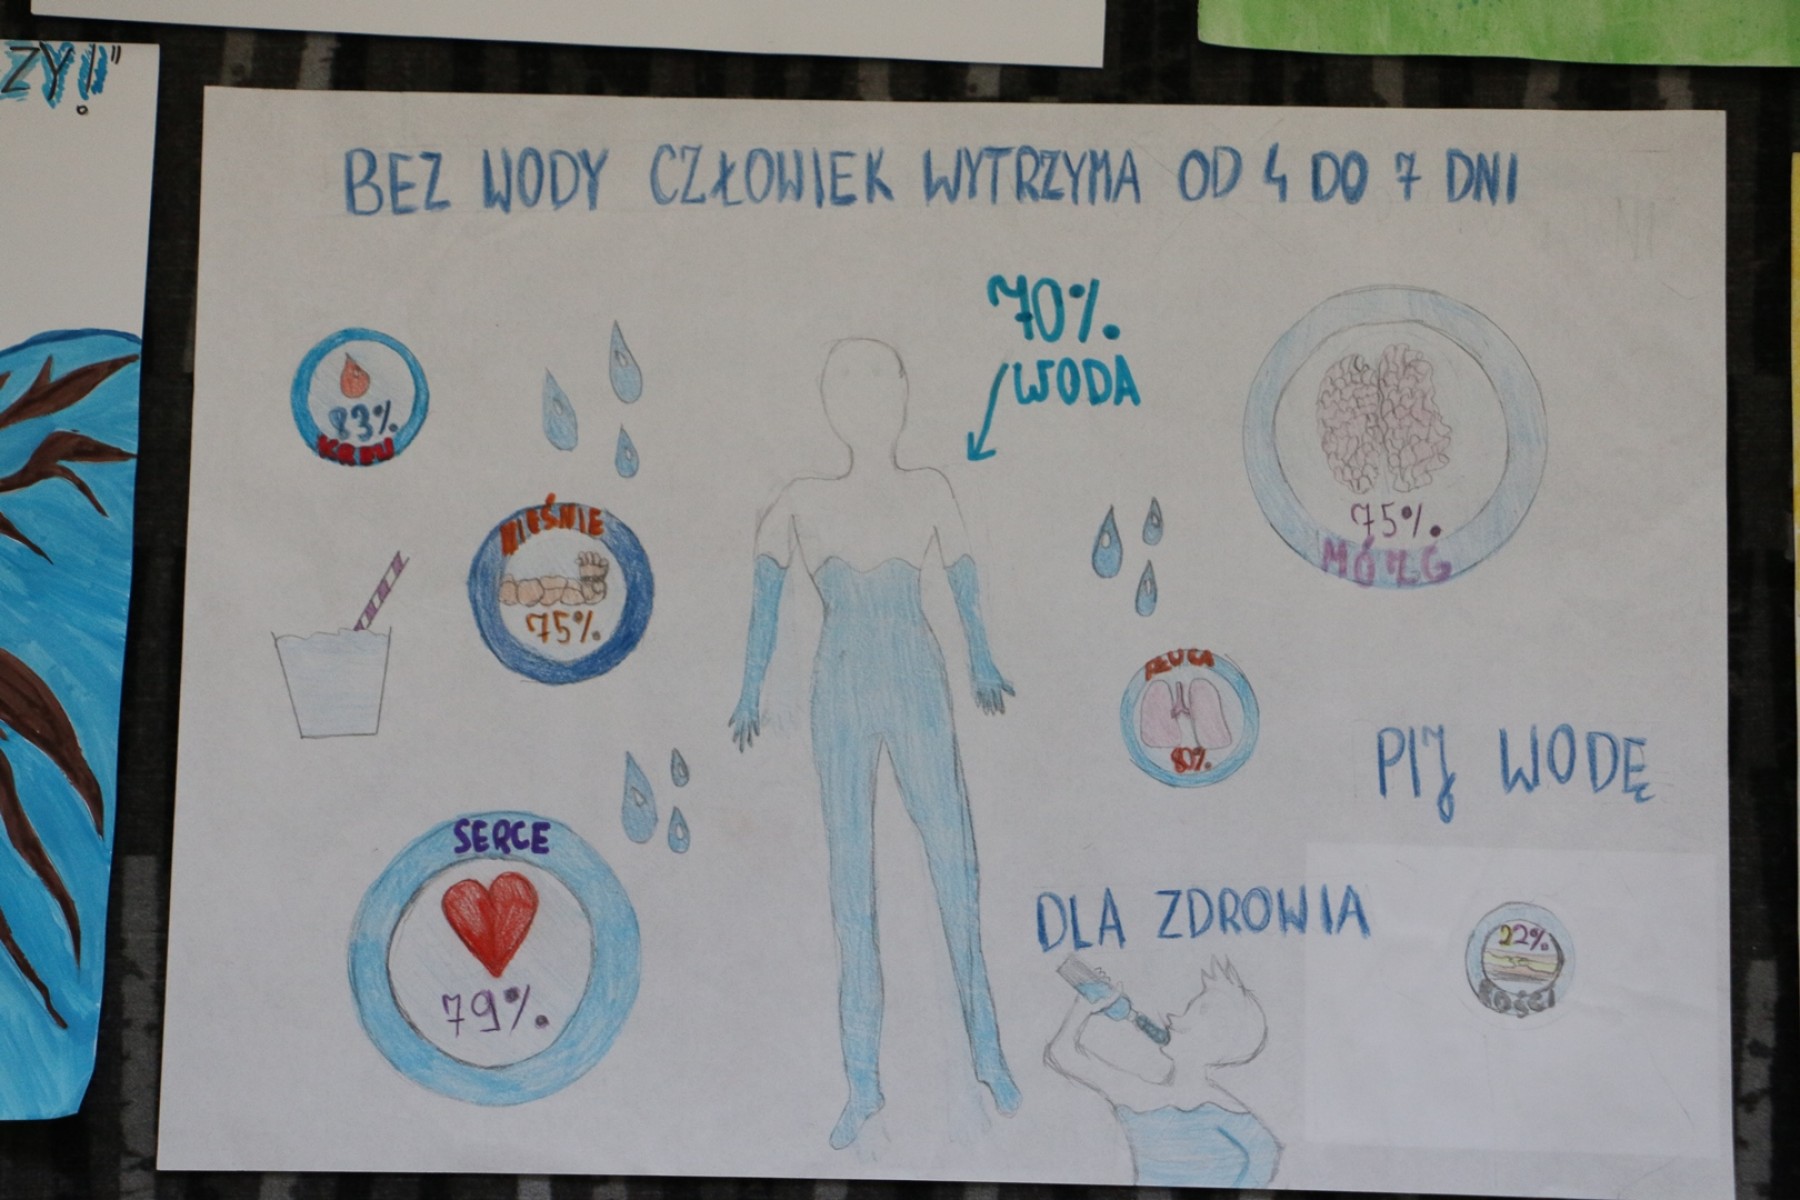 ZY!"
BEZ WODY CZŁOWIEK WYTRZYMA OD 4 DO 7 DNI
70%
WODA
83%
KREW
MIĘŚNIE
75%
75%
MÓZG
PŁUCA
80%
PIJ WODĘ
SERCE
79%
DLA ZDROWIA
22%
KOŚCI